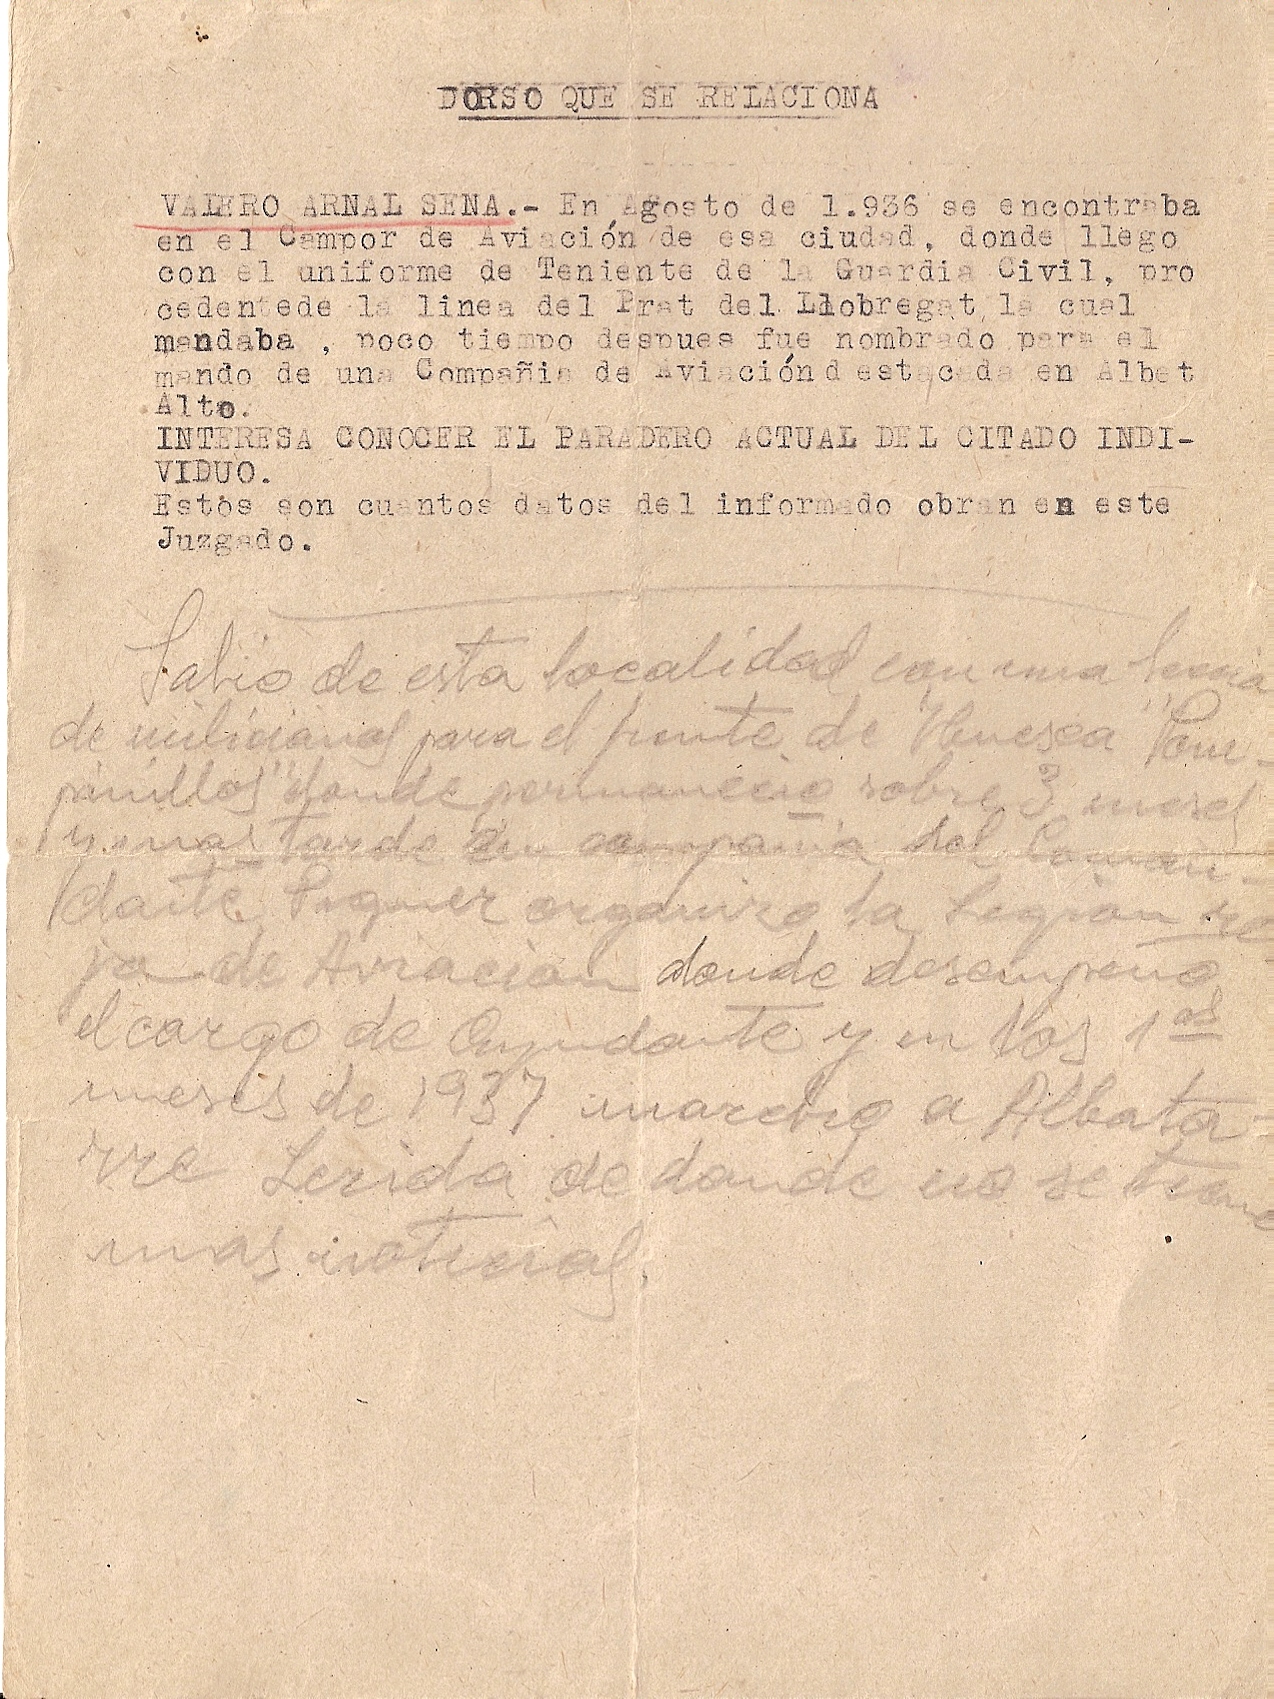 DORSO QUE SE RELACIONA
VALERO ARNAL SENA.- En Agosto de 1.936 se encontraba
en el Campor de Aviación de esa ciudad, donde llego
con el uniforme de Teniente de la Guardia Civil, pro
cedentede la linea del Prat del Llobregat, la cual
mandaba , poco tiempo despues fue nombrado para el
mando de una Compañia de Aviación destacada en Albet
Alto.
INTERESA CONOCER EL PARADERO ACTUAL DEL CITADO INDI-
VIDUO.
Estos son cuantos datos del informado obran en este
Juzgado.
Salio de esta localidad con una
de milicianos para el frente de Huesca "Pom-
penillos" donde permanecio sobre 3 meses
y mas tarde en compañia del Coman-
dante organizo la Legion ro
ja de Aviacion donde desempeño
el cargo de Ayudante y en los 1os
meses de 1937 marcho a Albata-
rre Lerida de donde no se tiene
mas noticias.